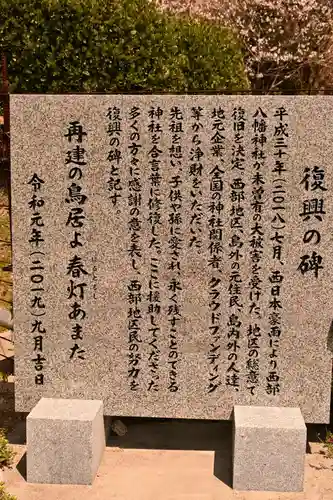 復興の碑
平成三十年(二〇一八)七月、西日本豪雨により西部
八幡神社が未曽有の大被害を受けた。地区の総意で
復旧を決定、西部地区、島外の元住民、島内外の人達、
地元企業、全国の神社関係者、クラウドファンディング
等から浄財をいただいた。
先祖を想い、子供や孫に愛され、永く残すことのできる
神社を合言葉に修復した。ここに援助してくださった
多くの方々に感謝の意を表し、西部地区民の努力を
復興の碑と記す。
再建の鳥居よ春灯あまた
はるともし
令和元年(二〇一九)九月吉日